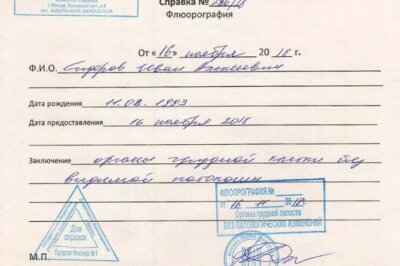 г. Москва,
Справка №
Флюорография
От «16» ноября 2018 г.
Ф.И.О. Сидоров Иван Алексеевич
Дата рождения 11.08.1993
Дата предоставления 16 ноября 2018
Заключение органы грудной клетки без
видимой патологии
ФЛЮОРОГРАФИЯ №
от 16 11 2018г.
Органы грудной полости
БЕЗ ПАТОЛОГИЧЕСКИХ ИЗМЕНЕНИЙ
Для
справок
Городская больница №1
М.П.